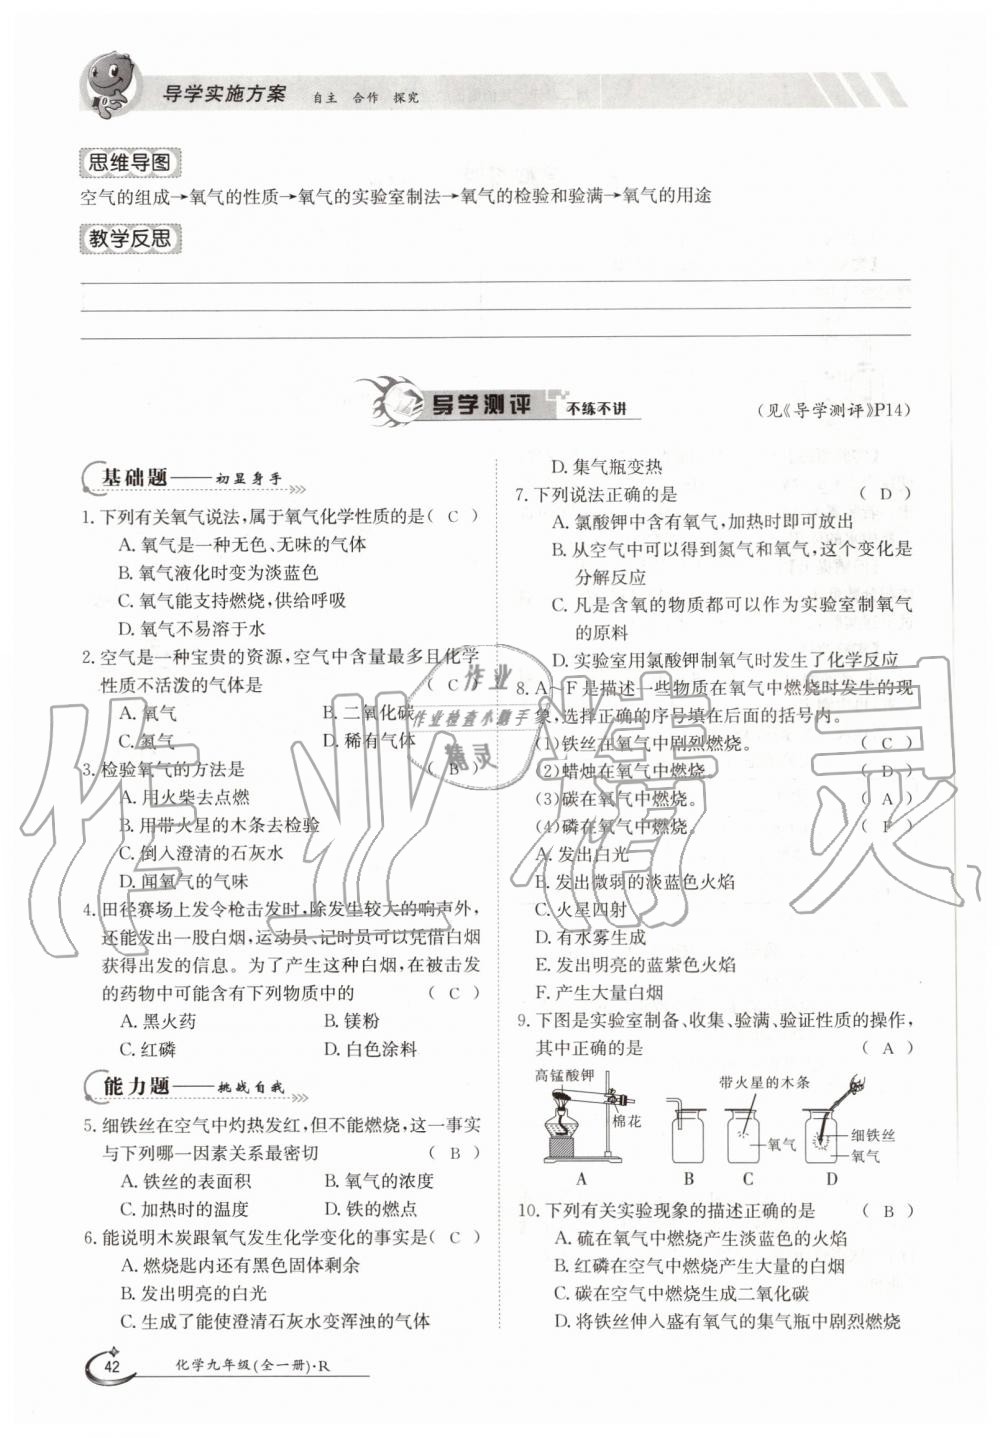 导学实施方案 自主 合作 探究
思维导图
空气的组成→氧气的性质→氧气的实验室制法→氧气的检验和验满→氧气的用途
教学反思
导学测评 不练不讲
(见《导学测评》P14)
基础题——初显身手
1. 下列有关氧气说法,属于氧气化学性质的是( C )
A. 氧气是一种无色、无味的气体
B. 氧气液化时变为淡蓝色
C. 氧气能支持燃烧,供给呼吸
D. 氧气不易溶于水
2. 空气是一种宝贵的资源,空气中含量最多且化学
性质不活泼的气体是 ( C )
A. 氧气 B. 二氧化碳
C. 氮气 D. 稀有气体
3. 检验氧气的方法是 ( B )
A. 用火柴去点燃
B. 用带火星的木条去检验
C. 倒入澄清的石灰水
D. 闻氧气的气味
4. 田径赛场上发令枪击发时,除发生较大的响声外,
还能发出一股白烟,运动员、记时员可以凭借白烟
获得出发的信息。为了产生这种白烟,在被击发
的药物中可能含有下列物质中的 ( C )
A. 黑火药 B. 镁粉
C. 红磷 D. 白色涂料
能力题——挑战自我
5. 细铁丝在空气中灼热发红,但不能燃烧,这一事实
与下列哪一因素关系最密切 ( B )
A. 铁丝的表面积 B. 氧气的浓度
C. 加热时的温度 D. 铁的燃点
6. 能说明木炭跟氧气发生化学变化的事实是( C )
A. 燃烧匙内还有黑色固体剩余
B. 发出明亮的白光
C. 生成了能使澄清石灰水变浑浊的气体
D. 集气瓶变热
7. 下列说法正确的是 ( D )
A. 氯酸钾中含有氧气,加热时即可放出
B. 从空气中可以得到氮气和氧气,这个变化是
分解反应
C. 凡是含氧的物质都可以作为实验室制氧气
的原料
D. 实验室用氯酸钾制氧气时发生了化学反应
8. A~F是描述一些物质在氧气中燃烧时发生的现
象,选择正确的序号填在后面的括号内。
(1)铁丝在氧气中剧烈燃烧。 ( C )
(2)蜡烛在氧气中燃烧。 ( D )
(3)碳在氧气中燃烧。 ( A )
(4)磷在氧气中燃烧。 ( F )
A. 发出白光
B. 发出微弱的淡蓝色火焰
C. 火星四射
D. 有水雾生成
E. 发出明亮的蓝紫色火焰
F. 产生大量白烟
9. 下图是实验室制备、收集、验满、验证性质的操作,
其中正确的是 ( A )
高锰酸钾 带火星的木条
棉花 氧气 细铁丝
氧气
A B C D
10. 下列有关实验现象的描述正确的是 ( B )
A. 硫在氧气中燃烧产生淡蓝色的火焰
B. 红磷在空气中燃烧产生大量的白烟
C. 碳在空气中燃烧生成二氧化碳
D. 将铁丝伸入盛有氧气的集气瓶中剧烈燃烧
42 化学九年级(全一册)·R
作业
作业检查小助手
精灵
作业精灵